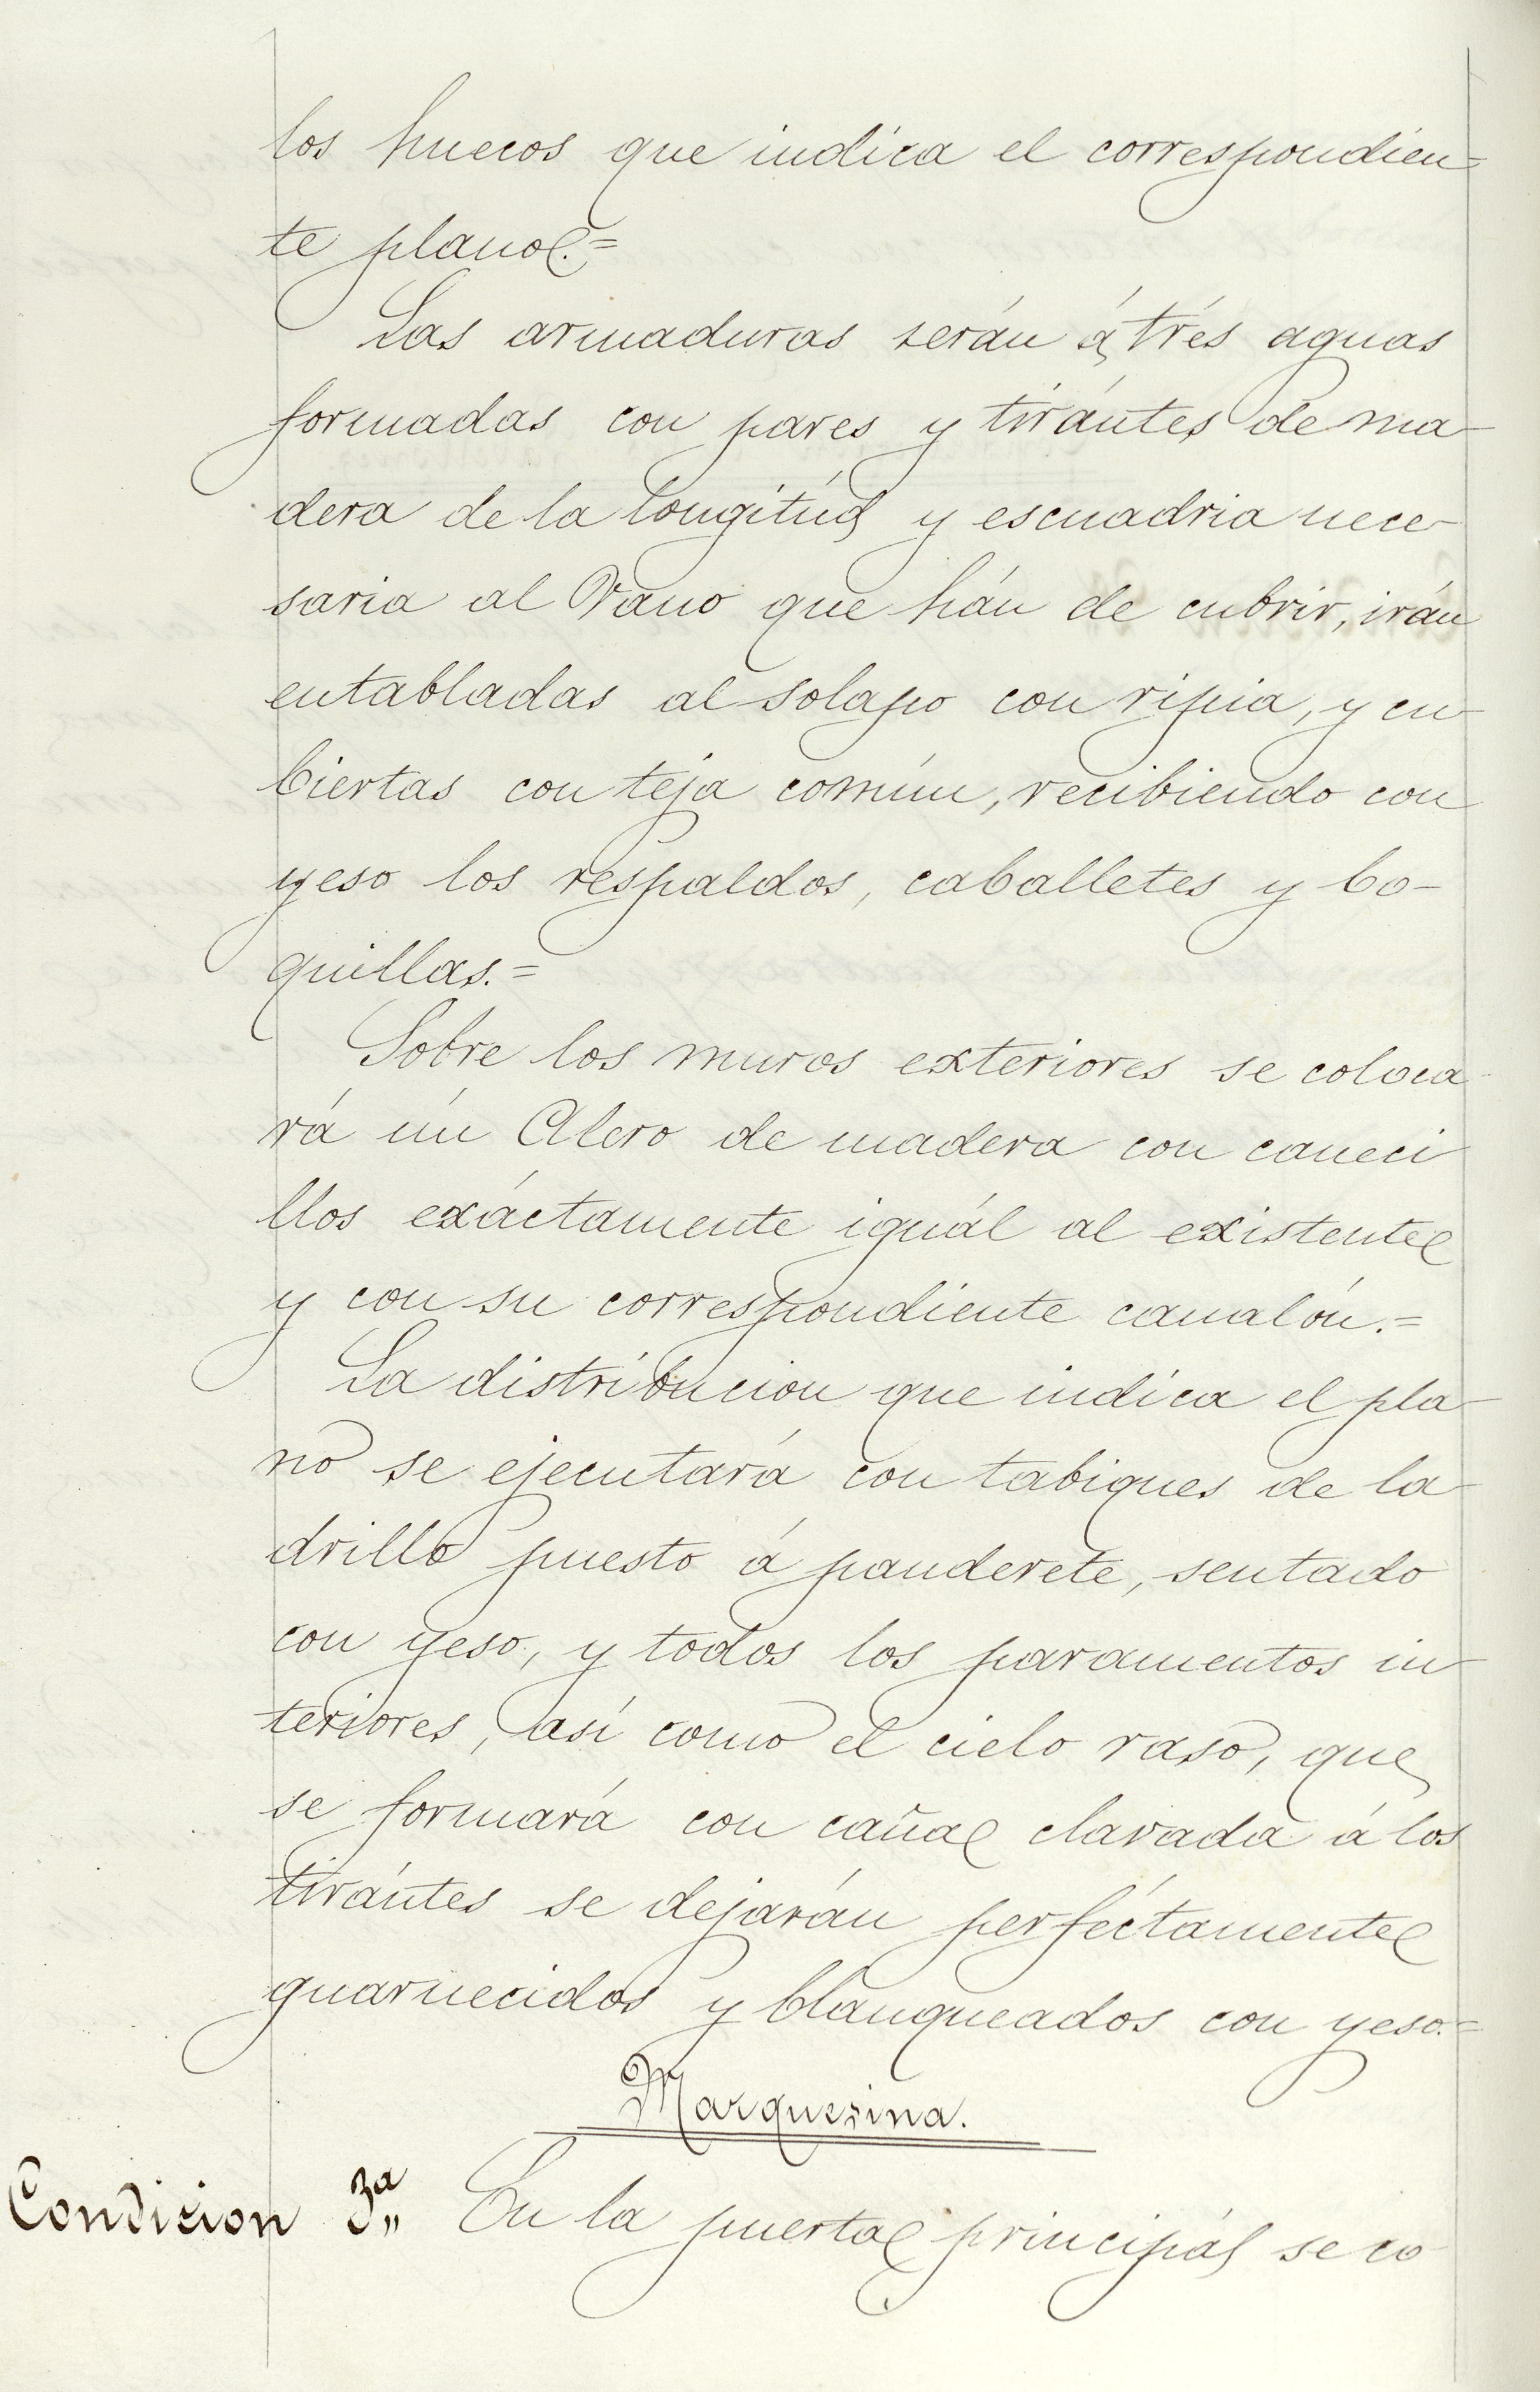 los huecos que indica el correspondien=
te plano.=
Las armaduras serán á trés aguas
formadas con pares y tirántes de ma-
dera de la longitúd y escuadria nece-
saria al Vano que hán de cubrir, irán
entabladas al solapo con ripia, y cu-
biertas con teja común, recibiendo con
yeso los respaldos, caballetes y bo-
quillas.=
Sobre los muros exteriores se coloca-
rá ún Alero de madera con caneci
llos exáctamente iguál al existente
y con su correspondiente canalón.=
La distribucion que indica el pla-
no se ejecutará con tabiques de la-
drillo puesto á panderete, sentado
con yeso, y todos los paramentos in-
teriores, así como el cielo raso, que
se formará con caña clavada á los
tirántes se dejarán perféctamente
guarnecidos y blanqueados con yeso.=
Marquesina.
Condicion 3ª En la puerta principál se co-